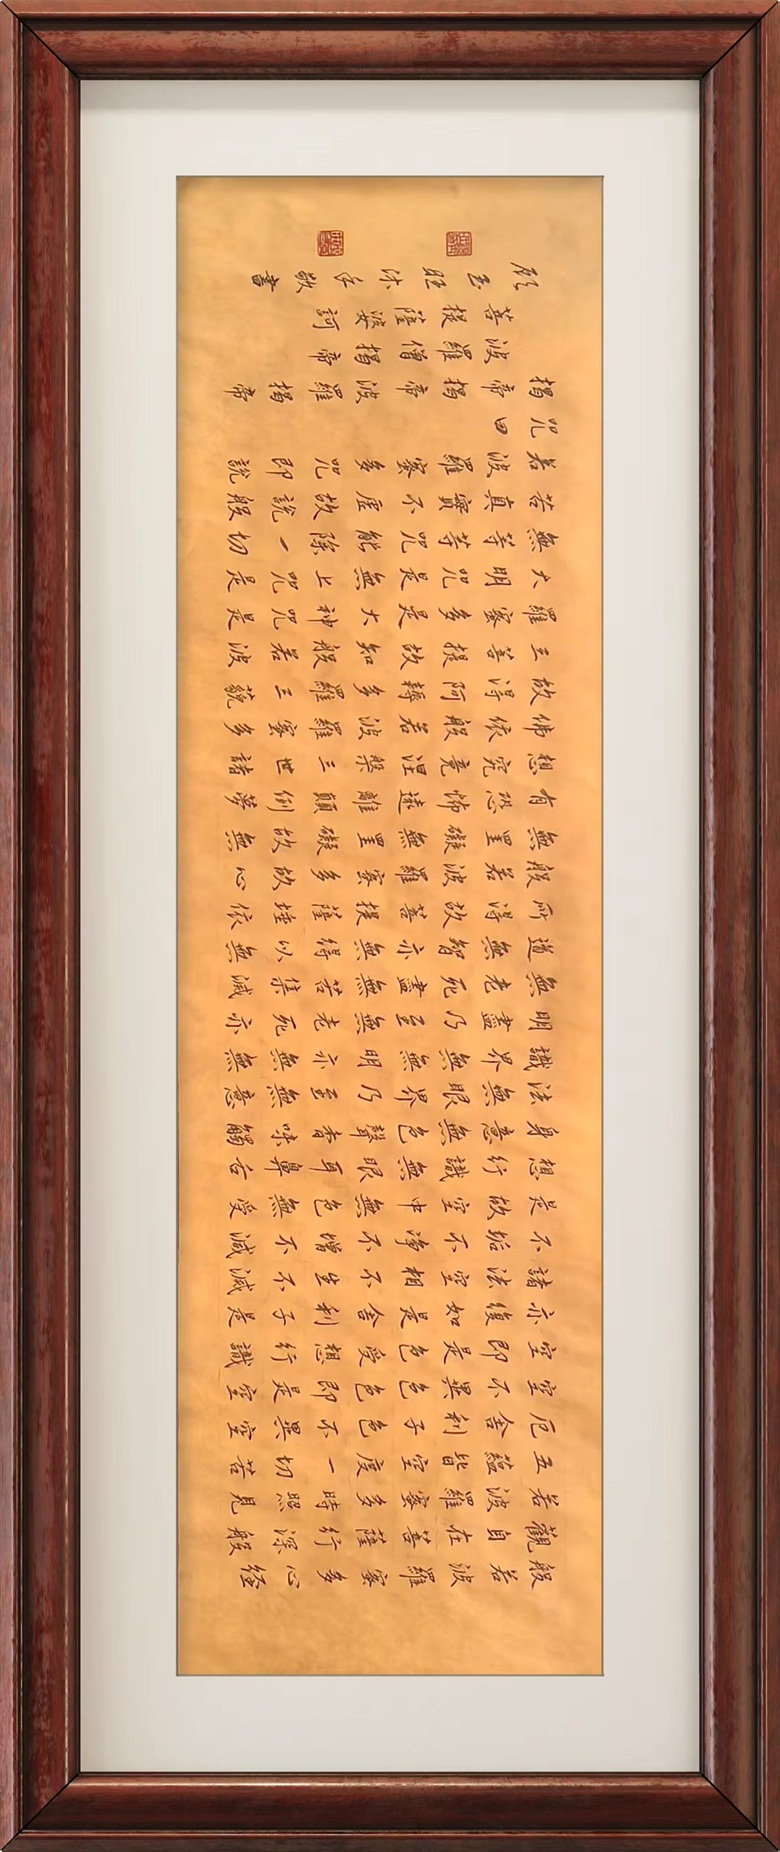 般若波羅蜜多心経
觀自在菩薩行深般
若波羅蜜多時照見
五蘊皆空度一切苦
厄舍利子色不異空
空不異色色即是空
空即是色受想行識
亦復如是舍利子是
諸法空相不生不滅
不垢不淨不增不減
是故空中無色無受
想行識無眼耳鼻舌
身意無色聲香味觸
法無眼界乃至無意
識界無無明亦無無
明盡乃至無老死亦
無老死盡無苦集滅
道無智亦無得以無
所得故菩提薩埵依
般若波羅蜜多故心
無罣礙無罣礙故無
有恐怖遠離顛倒夢
想究竟涅槃三世諸
佛依般若波羅蜜多
故得阿耨多羅三藐
三菩提故知般若波
羅蜜多是大神咒是
大明咒是無上咒是
無等等咒能除一切
苦真實不虛故說般
若波羅蜜多咒即說
咒曰
揭帝揭帝波羅揭帝
波羅僧揭帝
菩提薩婆訶
顾玉旺沐手敬書